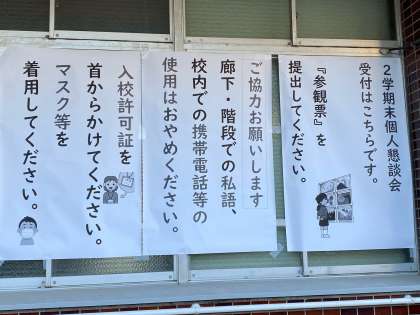 ２学期末個人懇談会
受付はこちらです。
『参観票』を
提出してください。
ご協力お願いします
廊下・階段での私語、
校内での携帯電話等の
使用はおやめください。
入校許可証を
首からかけてください。
マスク等を
着用してください。